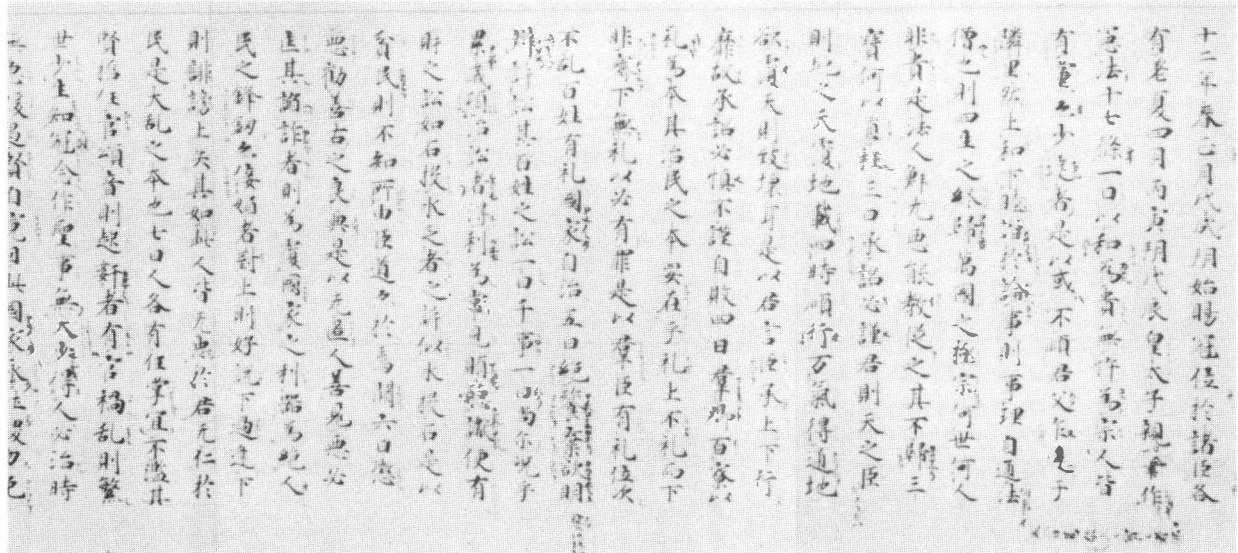 十二年春正月戊戌朔始賜冠位於諸臣各
有差夏四月丙寅朔戊辰皇太子親肇作
憲法十七條一曰以和為貴無忤為宗人皆
有黨亦少達者是以或不順君父乍違于
隣里然上和下睦諧於論事則事理自通法
僧也則四生之終歸萬國之極宗何世何人
非貴是法人鮮尤悪能教従之其不歸三
寶何以直枉三曰承詔必謹君則天之臣
則地之天覆地載四時順行万氣得通地
欲覆天則致壊耳是以君言臣承上下行
靡故承詔必慎不謹自敗四曰群卿百寮以
礼為本其治民之本要在乎礼上不礼而下
非齊下無礼以必有罪是以群臣有礼位次
不乱百姓有礼國家自治五曰絶饗棄欲明
辨訴訟其百姓之訟一日千事一日尚尓况乎
累歳須治訟者得利為常見賄聴讞便有
財之訟如石投水乏者之訴似水投石是以
貧民則不知所由臣道亦於焉闕六曰懲
悪勧善古之良典是以无匿人善見悪必
匡其諂詐者則為覆國家之利器為絶人
民之鋒釼亦侫媚者對上則好説下過逢下
則誹謗上失其如此人皆无忠於君无仁於
民是大乱之本也七曰人各有任掌宜不濫其
賢哲任官頌音則起姧者有官禍乱則繁
世少生知尅念作聖事無大少得人必治時
急緩遇賢自寛因此國家永